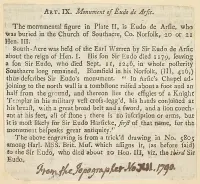 ART. IX. Monument of Eudo de Arsic.
The monumental figure in Plate II, is Eudo de Arsic, who
was buried in the Church of Southacre, Co. Norfolk, 20 or 21
Hen. III.
South-Acre was held of the Earl Warren by Sir Eudo de Arsic
about the reign of Hen. I. His son Sir Eudo died 1179, leaving
a son Sir Eudo, who died Sept. 11, 1226, in whose posterity
Southacre long remained. Blomefield in his Norfolk, (III, 426,)
thus describes Sir Eudo's monument. "In Arsic's Chapel ad-
joining to the north wall is a tombstone raised about a foot and an
half from the ground, and thereon lies the effigies of a Knight
Templar in his military vest cross-legg'd, his hands conjoined at
his breast, with a great broad belt and sword, and a lion couch-
ant at his feet, all of stone; there is no inscription or arms, but
it is most likely for Sir Eudo Harsicke, first of that name, for this
monument bespeaks great antiquity."
The above engraving is from a trick'd drawing in No. 4805
among Harl. MSS. Brit. Mus. which assigns it, (as before said)
to the Sir Eudo, who died about 20 Hen. III, viz. the third Sir
Eudo.
From the Topographer No. XIII. 1790.